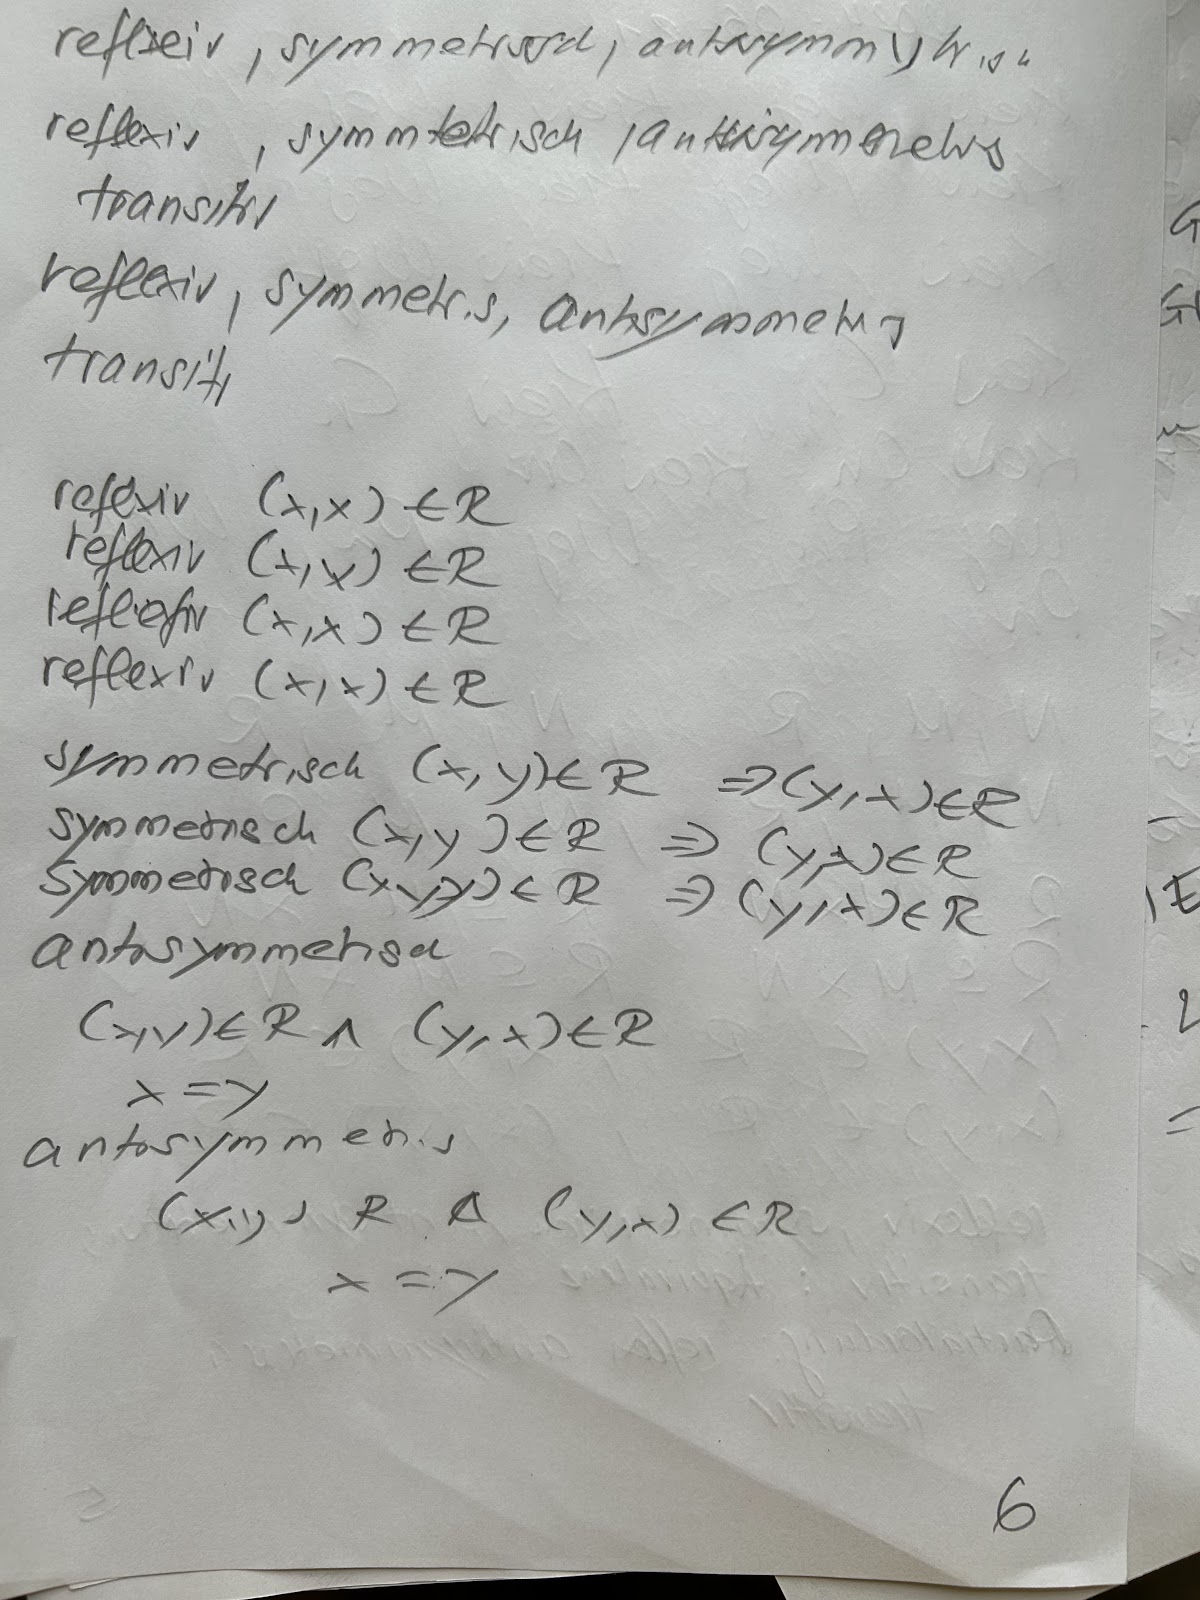 reflxeiv, symmetrisch, antisymm
reflexiv, symmtetrisch, antisymmetris
transitiv
reflexiv, symmetris, antisymmetris
transitiv
reflexiv (x,x) ∈ R
reflexiv (x,x) ∈ R
reflexiv (x,x) ∈ R
reflexiv (x,x) ∈ R
symmetrisch (x,y) ∈ R ⇒ (y,x) ∈ R
symmetrisch (x,y) ∈ R ⇒ (y,x) ∈ R
symmetrisch (x,y) ∈ R ⇒ (y,x) ∈ R
antisymmetrisch
(x,y) ∈ R ∧ (y,x) ∈ R
x = y
antisymmetris
(x,y) R ∧ (y,x) ∈ R
x = y
6